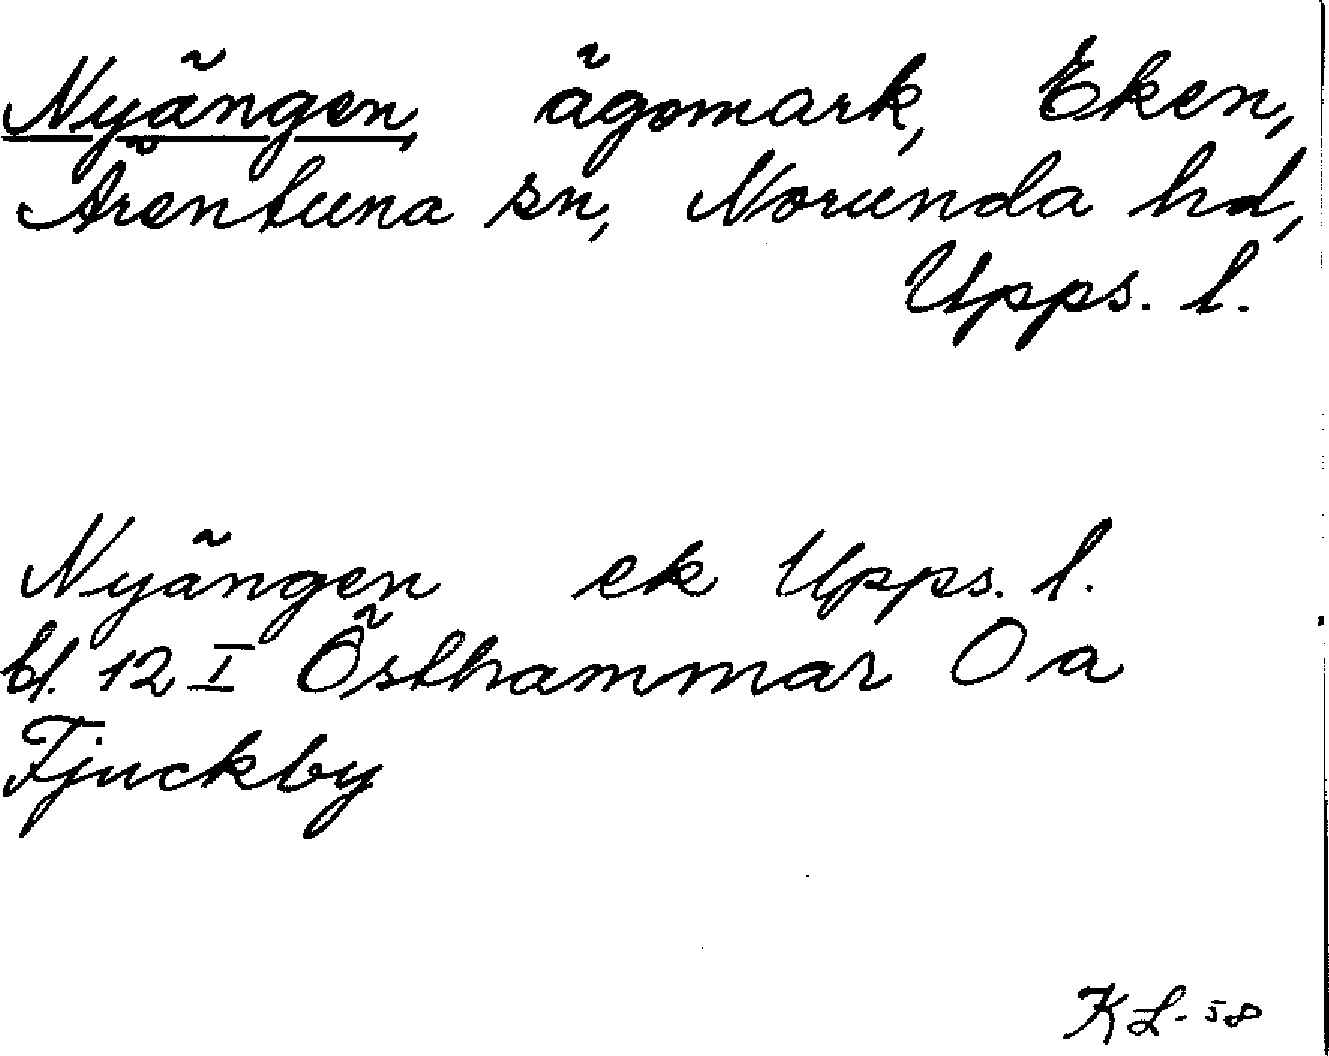 Nyängen, ägomark, Eken,
Ärentuna sn, Norunda hd,
Upps. l.
Nyängen ek Upps. l.
bl. 12 I Östhammar Oa
Fjuckby
KL-58